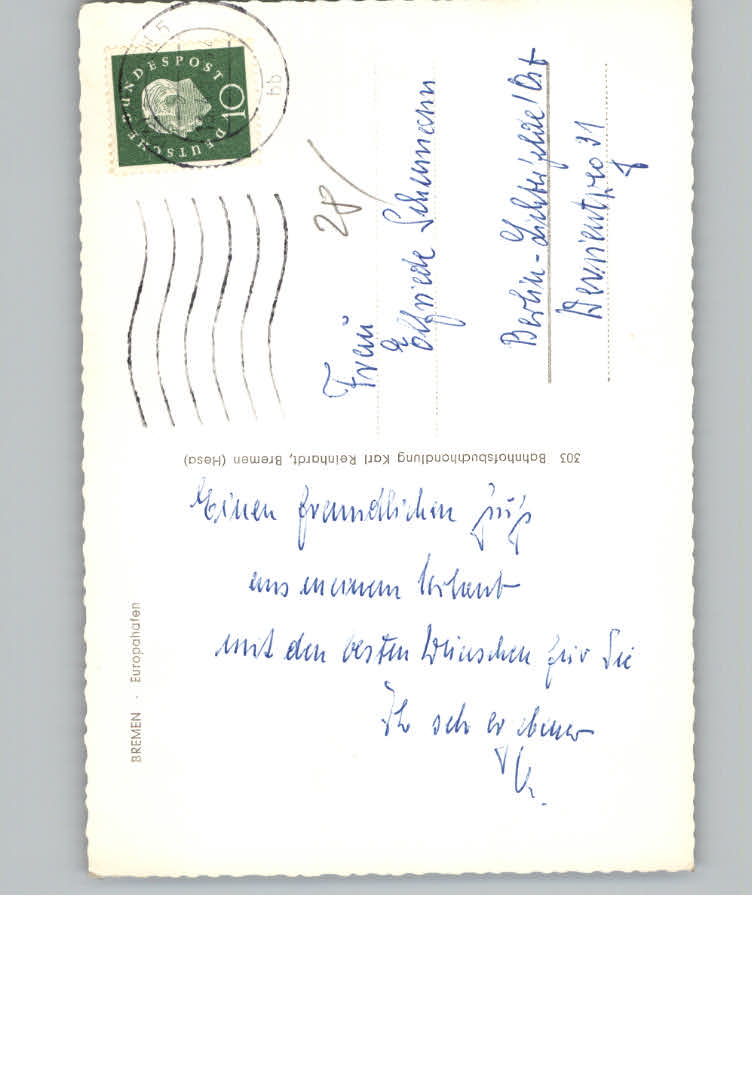 Einen freundlichen Gruß
aus meinem Urlaub
mit den besten Wünschen für Sie
Ihr sehr ergebener
Frau
Elfriede Schumann
Berlin-Lichterfelde/Ost
31
28/
DEUTSCHE BUNDESPOST
10
bb
303 Bahnhofsbuchhandlung Karl Reinhardt, Bremen (Hesa)
BREMEN · Europahafen